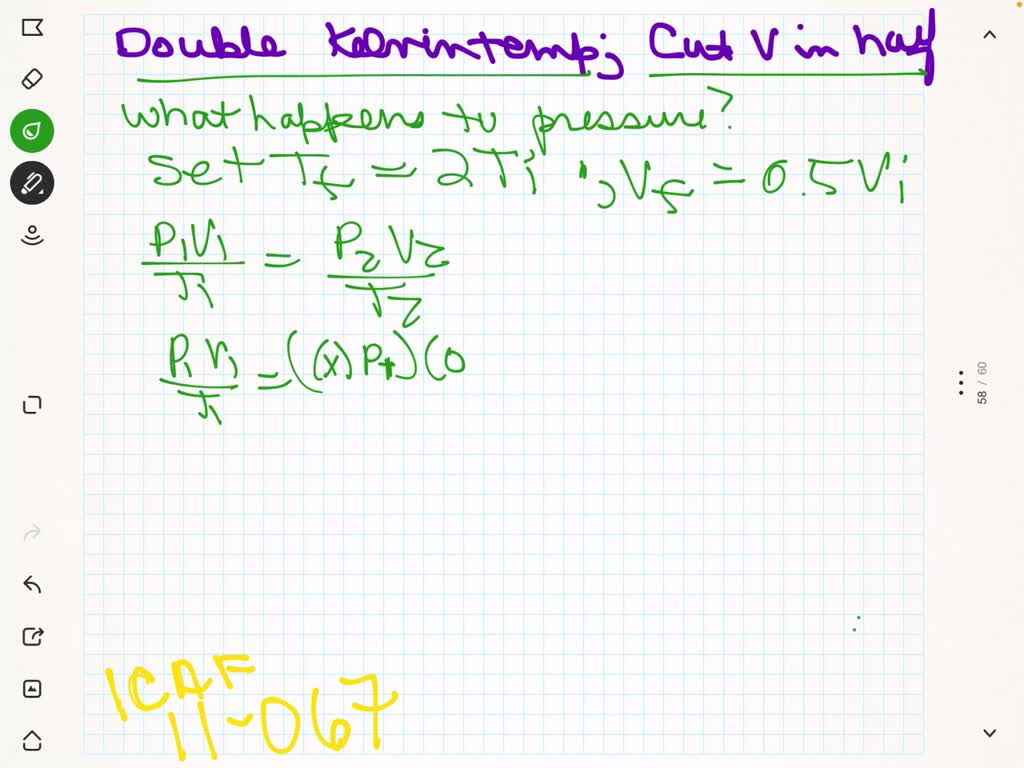 Double Kelvin temp; Cut V in half
what happens to pressure?
Set T_f = 2T_i ; V_f = 0.5 V_i
P_1V_1/T_1 = P_2V_2/T_2
P_1V_1/T_1 = ((x)P_1)(0
58 / 60
ICAF
11-067